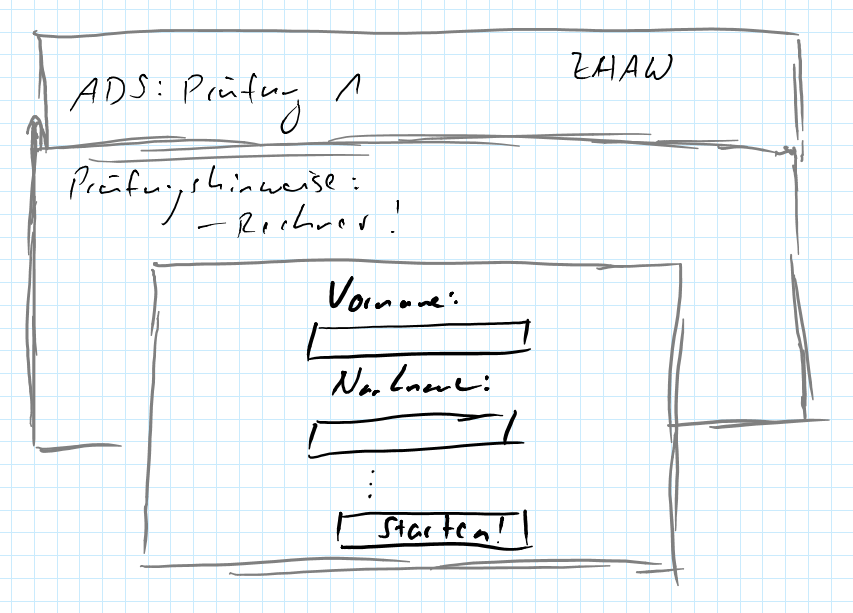 ADS: Prüfung 1
ZHAW
Prüfungshinweise:
- Rechner!
Vorname:
Nachname:
Starten!